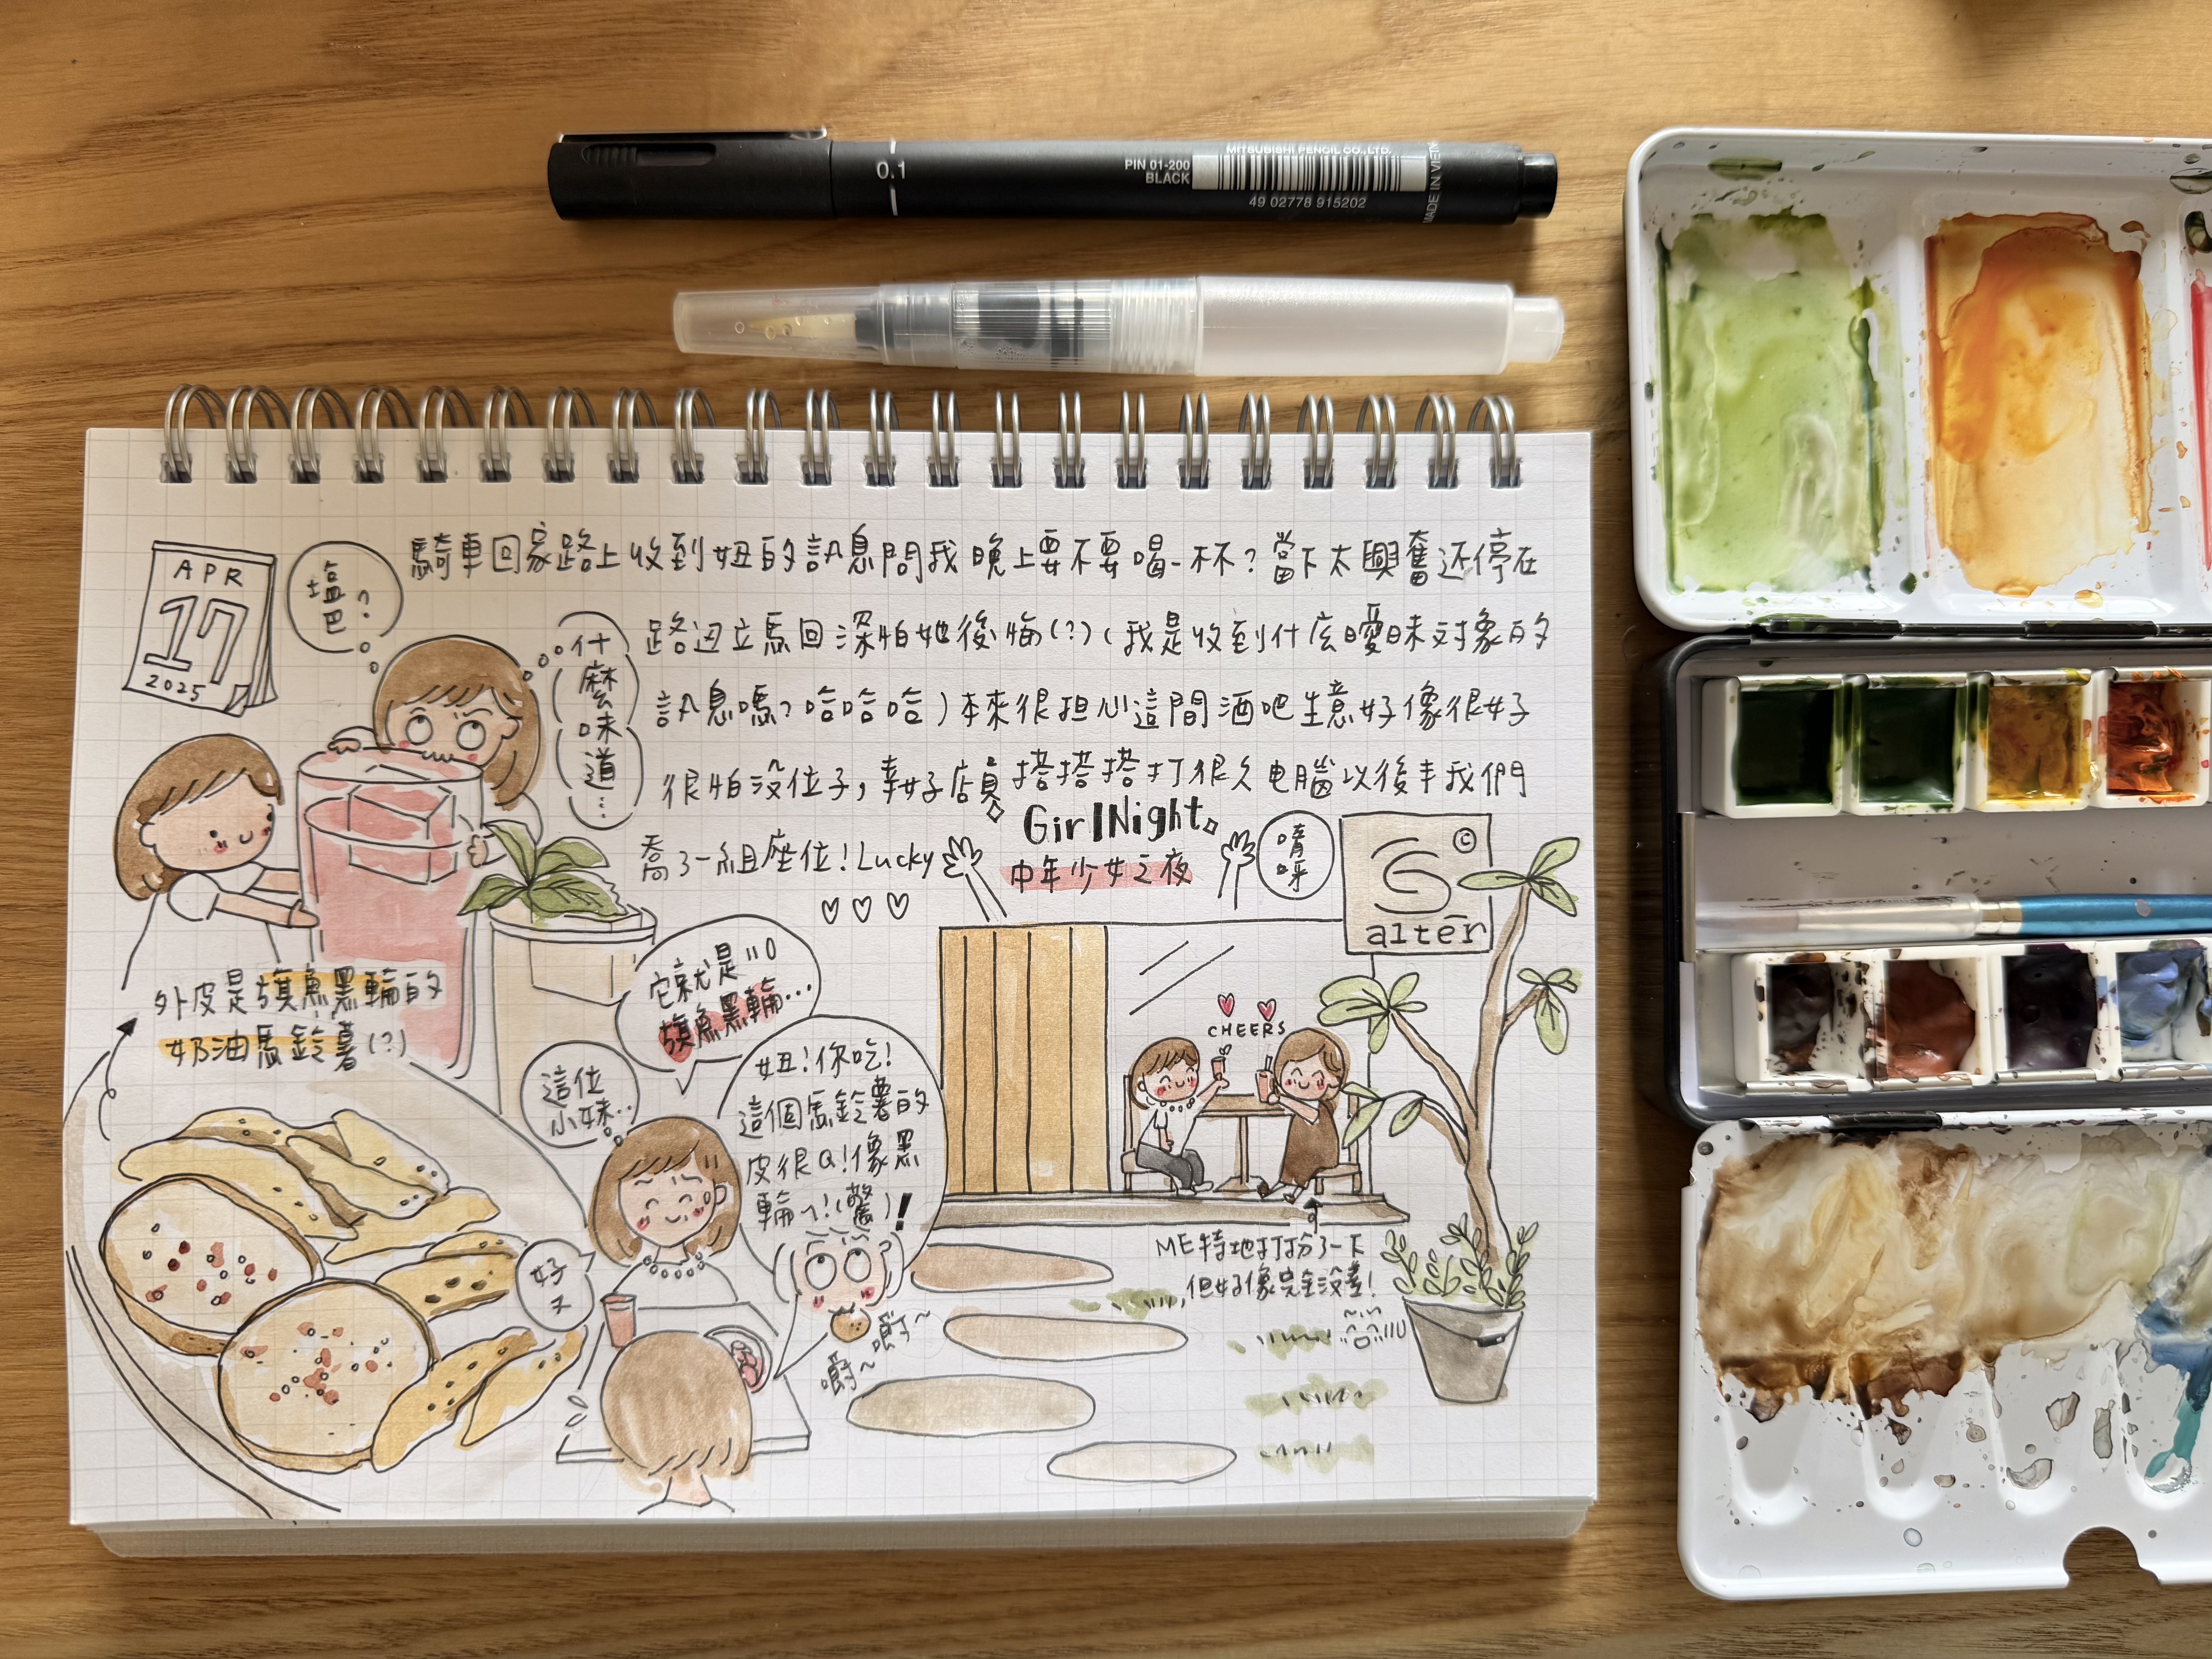 0.1
PIN 01-200
BLACK
MITSUBISHI PENCIL CO.,LTD.
49 02778 915202
MADE IN VIETN
APR
17
2025
塩
巴?
什
麼
味
道…
騎車回家路上收到妞的訊息問我晚上要不要喝一杯?當下太興奮还停在
路边立馬回深怕她後悔(?)(我是收到什庅曖昧对象的
訊息嗎?哈哈哈)本來很担心這間酒吧生意好像很好
很怕没位子,幸好店員搭搭搭打很久电腦以後丰我們
喬了一組座位!Lucky
GirlNight
中年少女之夜
唷
呀
©
alter
外皮是旗魚黑輪的
奶油馬鈴薯(?)
它就是
旗魚黑輪…
這位
小妹…
妞!你吃!
這個馬鈴薯的
皮很Q!像黑
輪ㄟ!(驚)!
好
ㄡ
嚼~
嚼~
CHEERS
ME特地打扮了一下
但好像完全没差!
哈